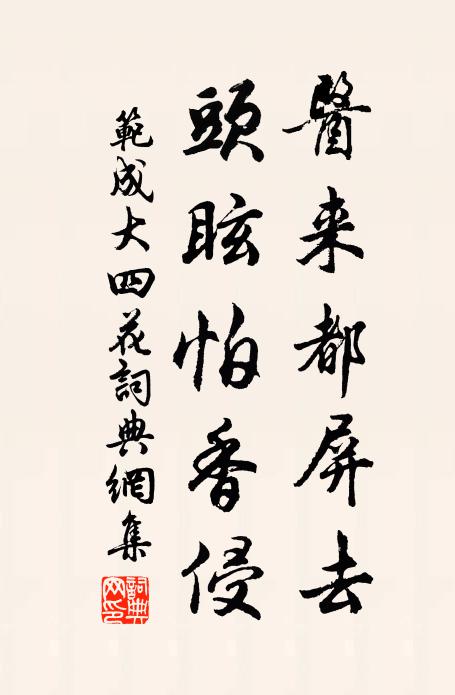 醫来都屏去
頭眩怕香侵
範成大四花詞典網集
詞典網印